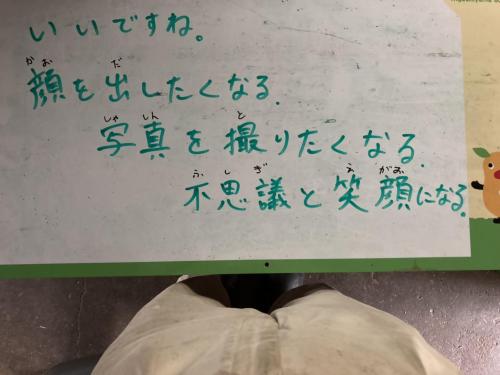 いいですね。
かお だ
顔を出したくなる.
しゃ しん と
写真を撮りたくなる.
ふ し ぎ え がお
不思議と笑顔になる.